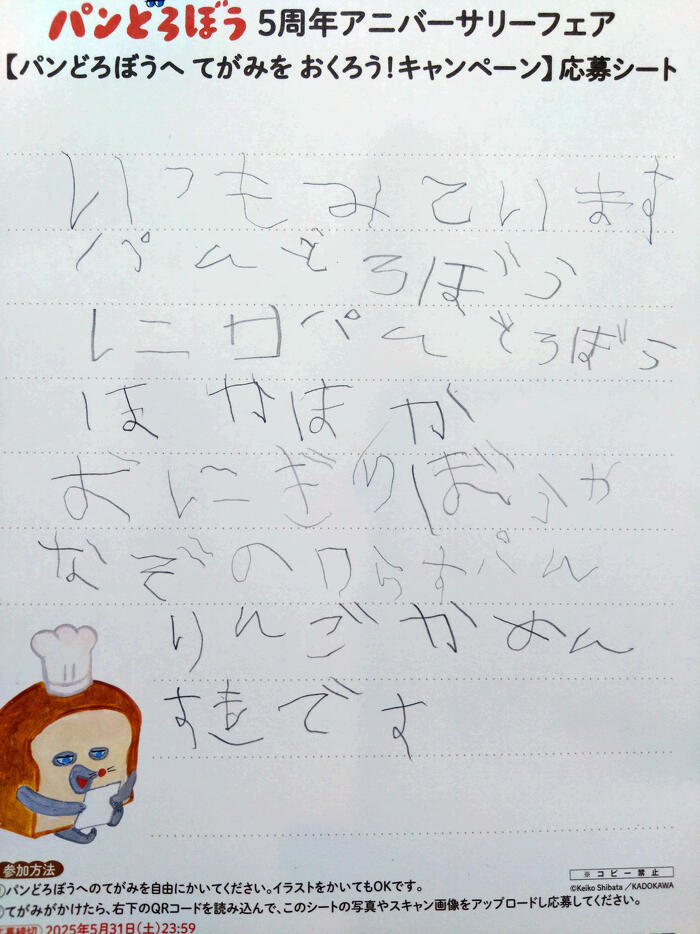 パンどろぼう 5周年アニバーサリーフェア
【パンどろぼうへ てがみを おくろう!キャンペーン】応募シート
いつもみています
パんどろぼう
にせパんどろぼう
ほかほが
おにぎりぼうや
なぞのフらすパん
りんごかめん
すきです
参加方法
①パンどろぼうへのてがみを自由にかいてください。イラストをかいてもOKです。
②てがみがかけたら、右下のQRコードを読み込んで、このシートの写真やスキャン画像をアップロードし応募してください。
応募締切 2025年5月31日(土)23:59
※コピー禁止
©Keiko Shibata/KADOKAWA